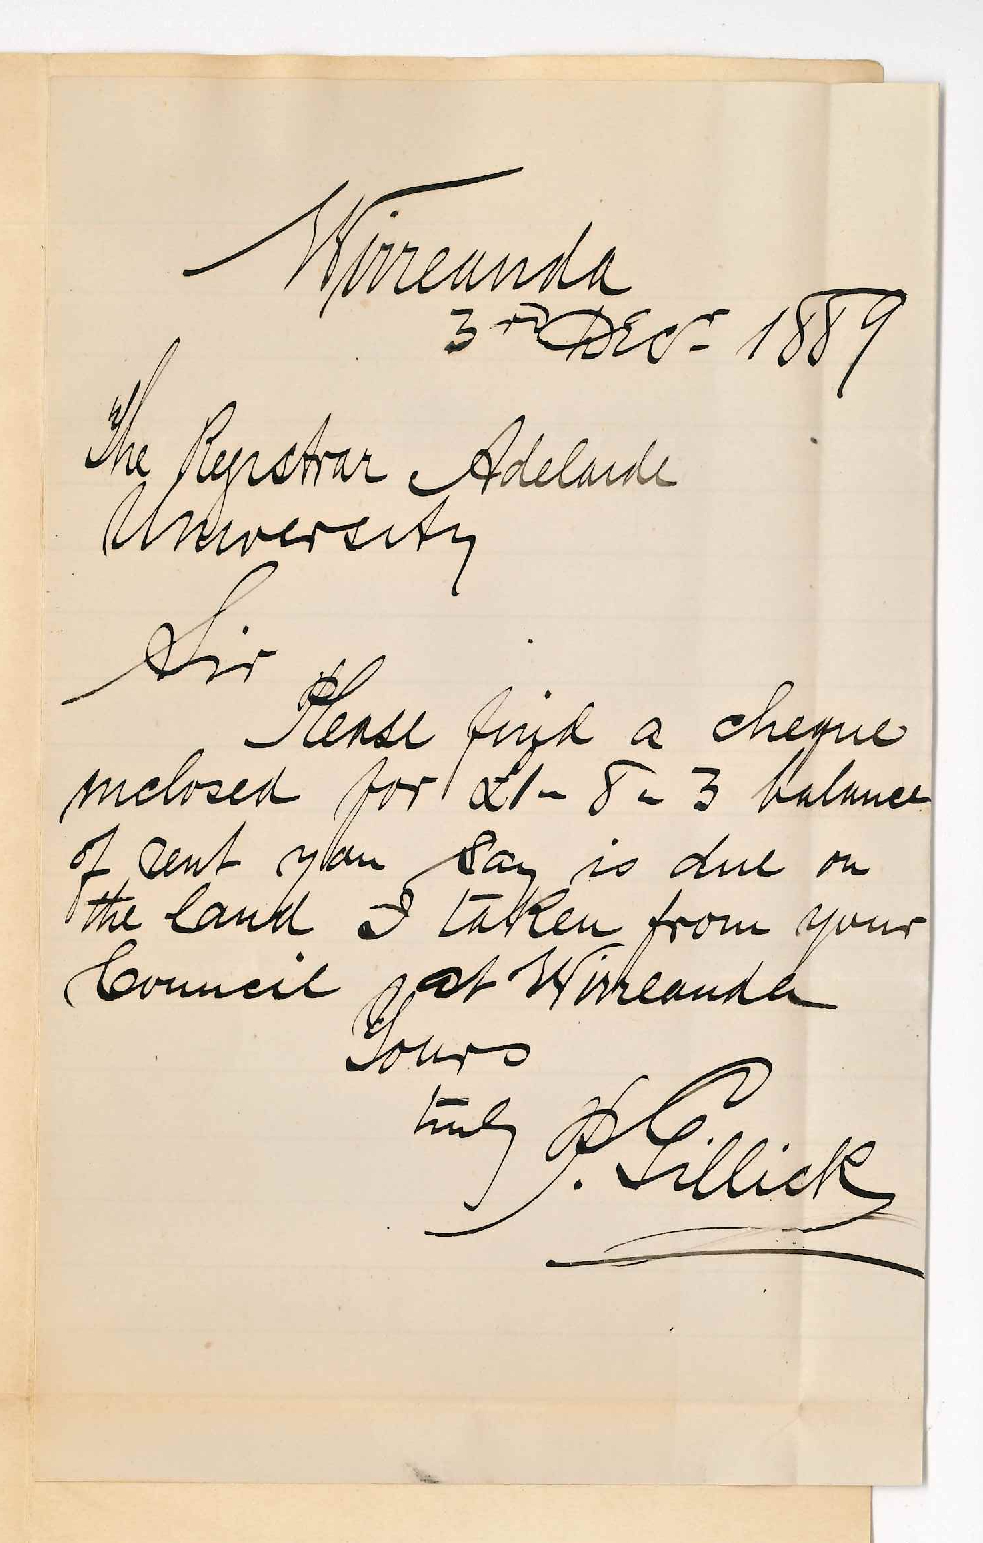 Wirreanda
3rd Decr 1889
The Registrar Adelaide
University
Sir
Please find a cheque
inclosed for £1-8-3 balance
of rent you say is due on
the land I taken from your
Council at Wirreanda
Yours
truly P. Gillick